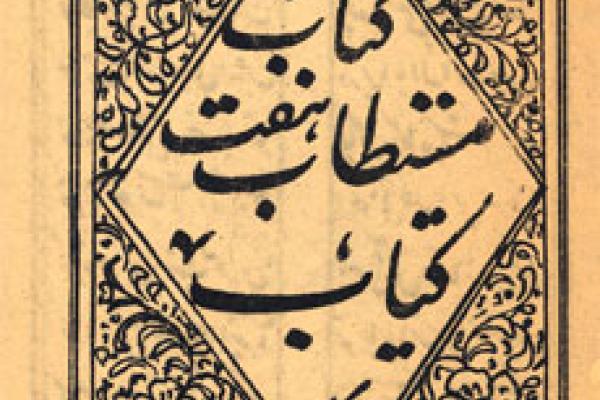 کتاب
مستطاب هفت
کتاب